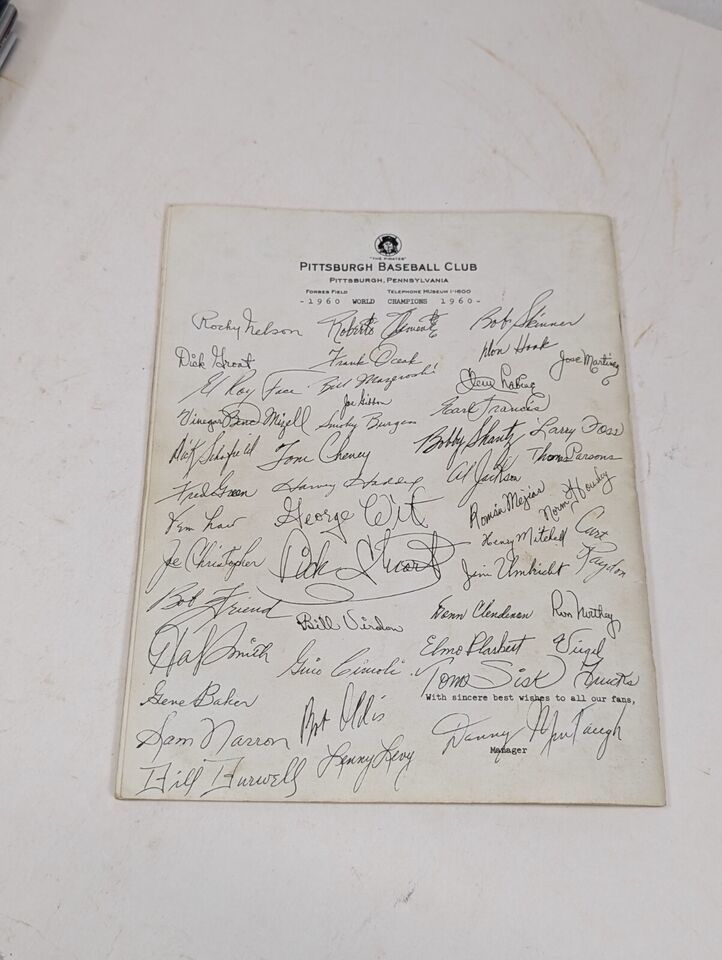 "THE PIRATES"
PITTSBURGH BASEBALL CLUB
PITTSBURGH, PENNSYLVANIA
FORBES FIELD TELEPHONE MUSEUM 1-1600
-1960 WORLD CHAMPIONS 1960-
Rocky Nelson Roberto Clemente Bob Skinner
Dick Groat Frank Oceak Don Hoak Jose Martinez
El Roy Face Bill Mazeroski Clem Labine
Joe Gibbon Earl Francis
Vinegar Bend Mizell Smoky Burgess
Dick Schofield Tom Cheney Bobby Shantz Larry Foss
Fred Green Harvey Haddix Al Jackson Thomas Parsons
Vern Law George Witt Román Mejias Norm Housley
Joe Christopher Dick Stuart Henry Mitchell Curt Raydon
Bob Friend Jim Umbricht
Bill Virdon Donn Clendenon Ron Northey
Hal Smith Gino Cimoli Elmo Plaskett Virgil Trucks
Gene Baker Bob Oldis Tom Sisk
With sincere best wishes to all our fans,
Sam Narron Danny Murtaugh
Manager
Bill Burwell Lenny Levy